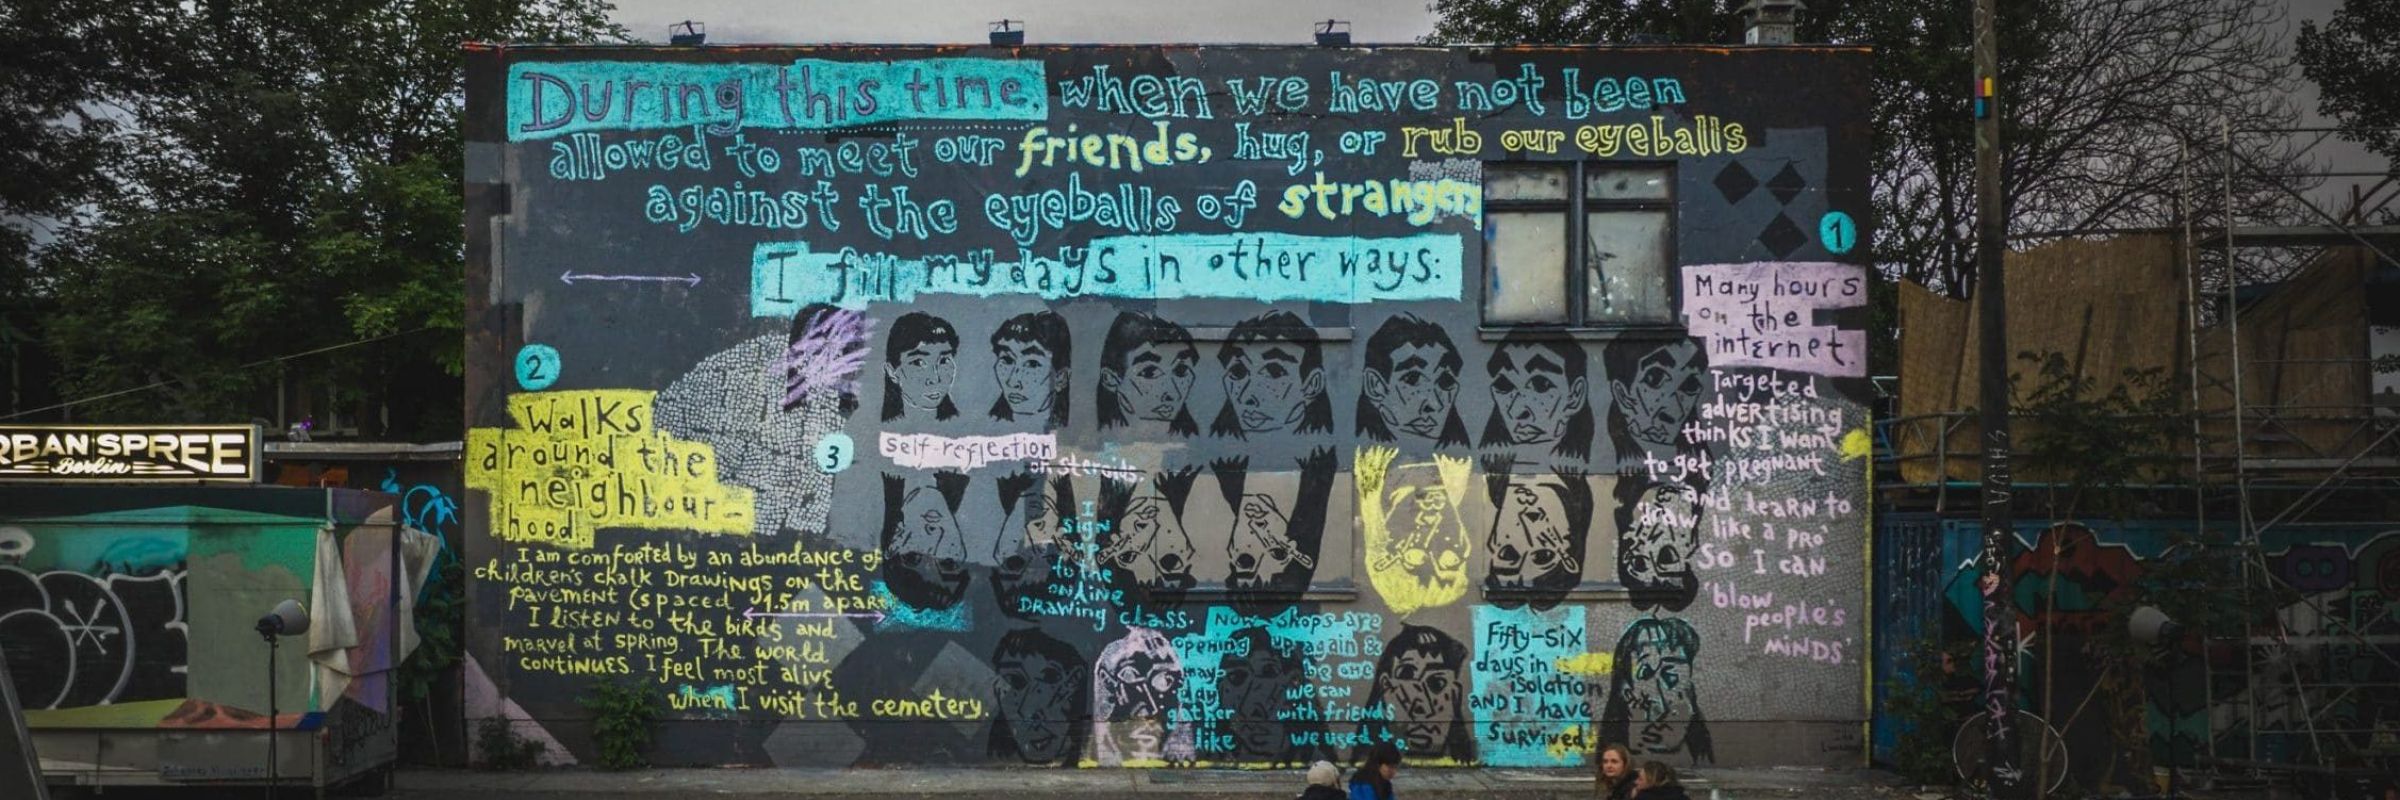 During this time, when we have not been
allowed to meet our friends, hug, or rub our eyeballs
against the eyeballs of strangers
I fill my days in other ways:
1
Many hours
on the
internet.
Targeted
advertising
thinks I want
to get pregnant
and learn to
draw like a pro
So I can
'blow
people's
minds'.
2
Walks
around the
neighbour-
hood.
I am comforted by an abundance of
children's chalk drawings on the
pavement (spaced 1.5m apart
I listen to the birds and
marvel at spring. The world
continues. I feel most alive
when I visit the cemetery.
3
self-reflection
on steroids.
I
sign
up
to the
online
drawing class.
Now shops are
opening up again &
may- be one
day we can
gather with friends
like we used to.
Fifty-six
days in
isolation
and I have
survived
RBAN SPREE
Berlin
SHIVA